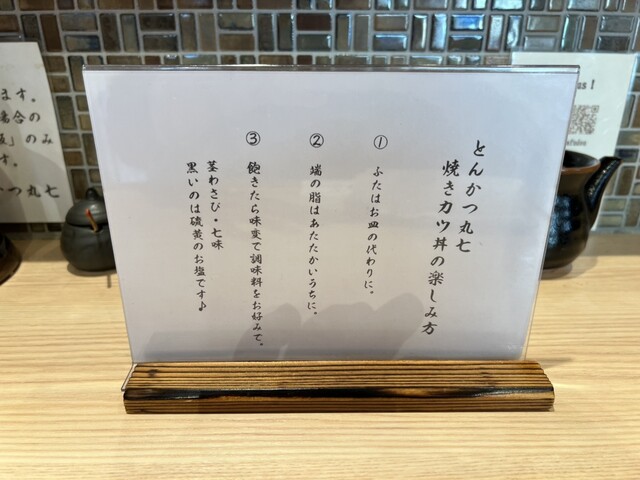 とんかつ丸七
焼きカツ丼の楽しみ方
① ふたはお皿の代わりに。
② 端の脂はあたたかいうちに。
③ 飽きたら味変で調味料をお好みで。
茎わさび・七味
黒いのは硫黄のお塩です♪
ます。
場合の
」のみ
す。
かつ丸七